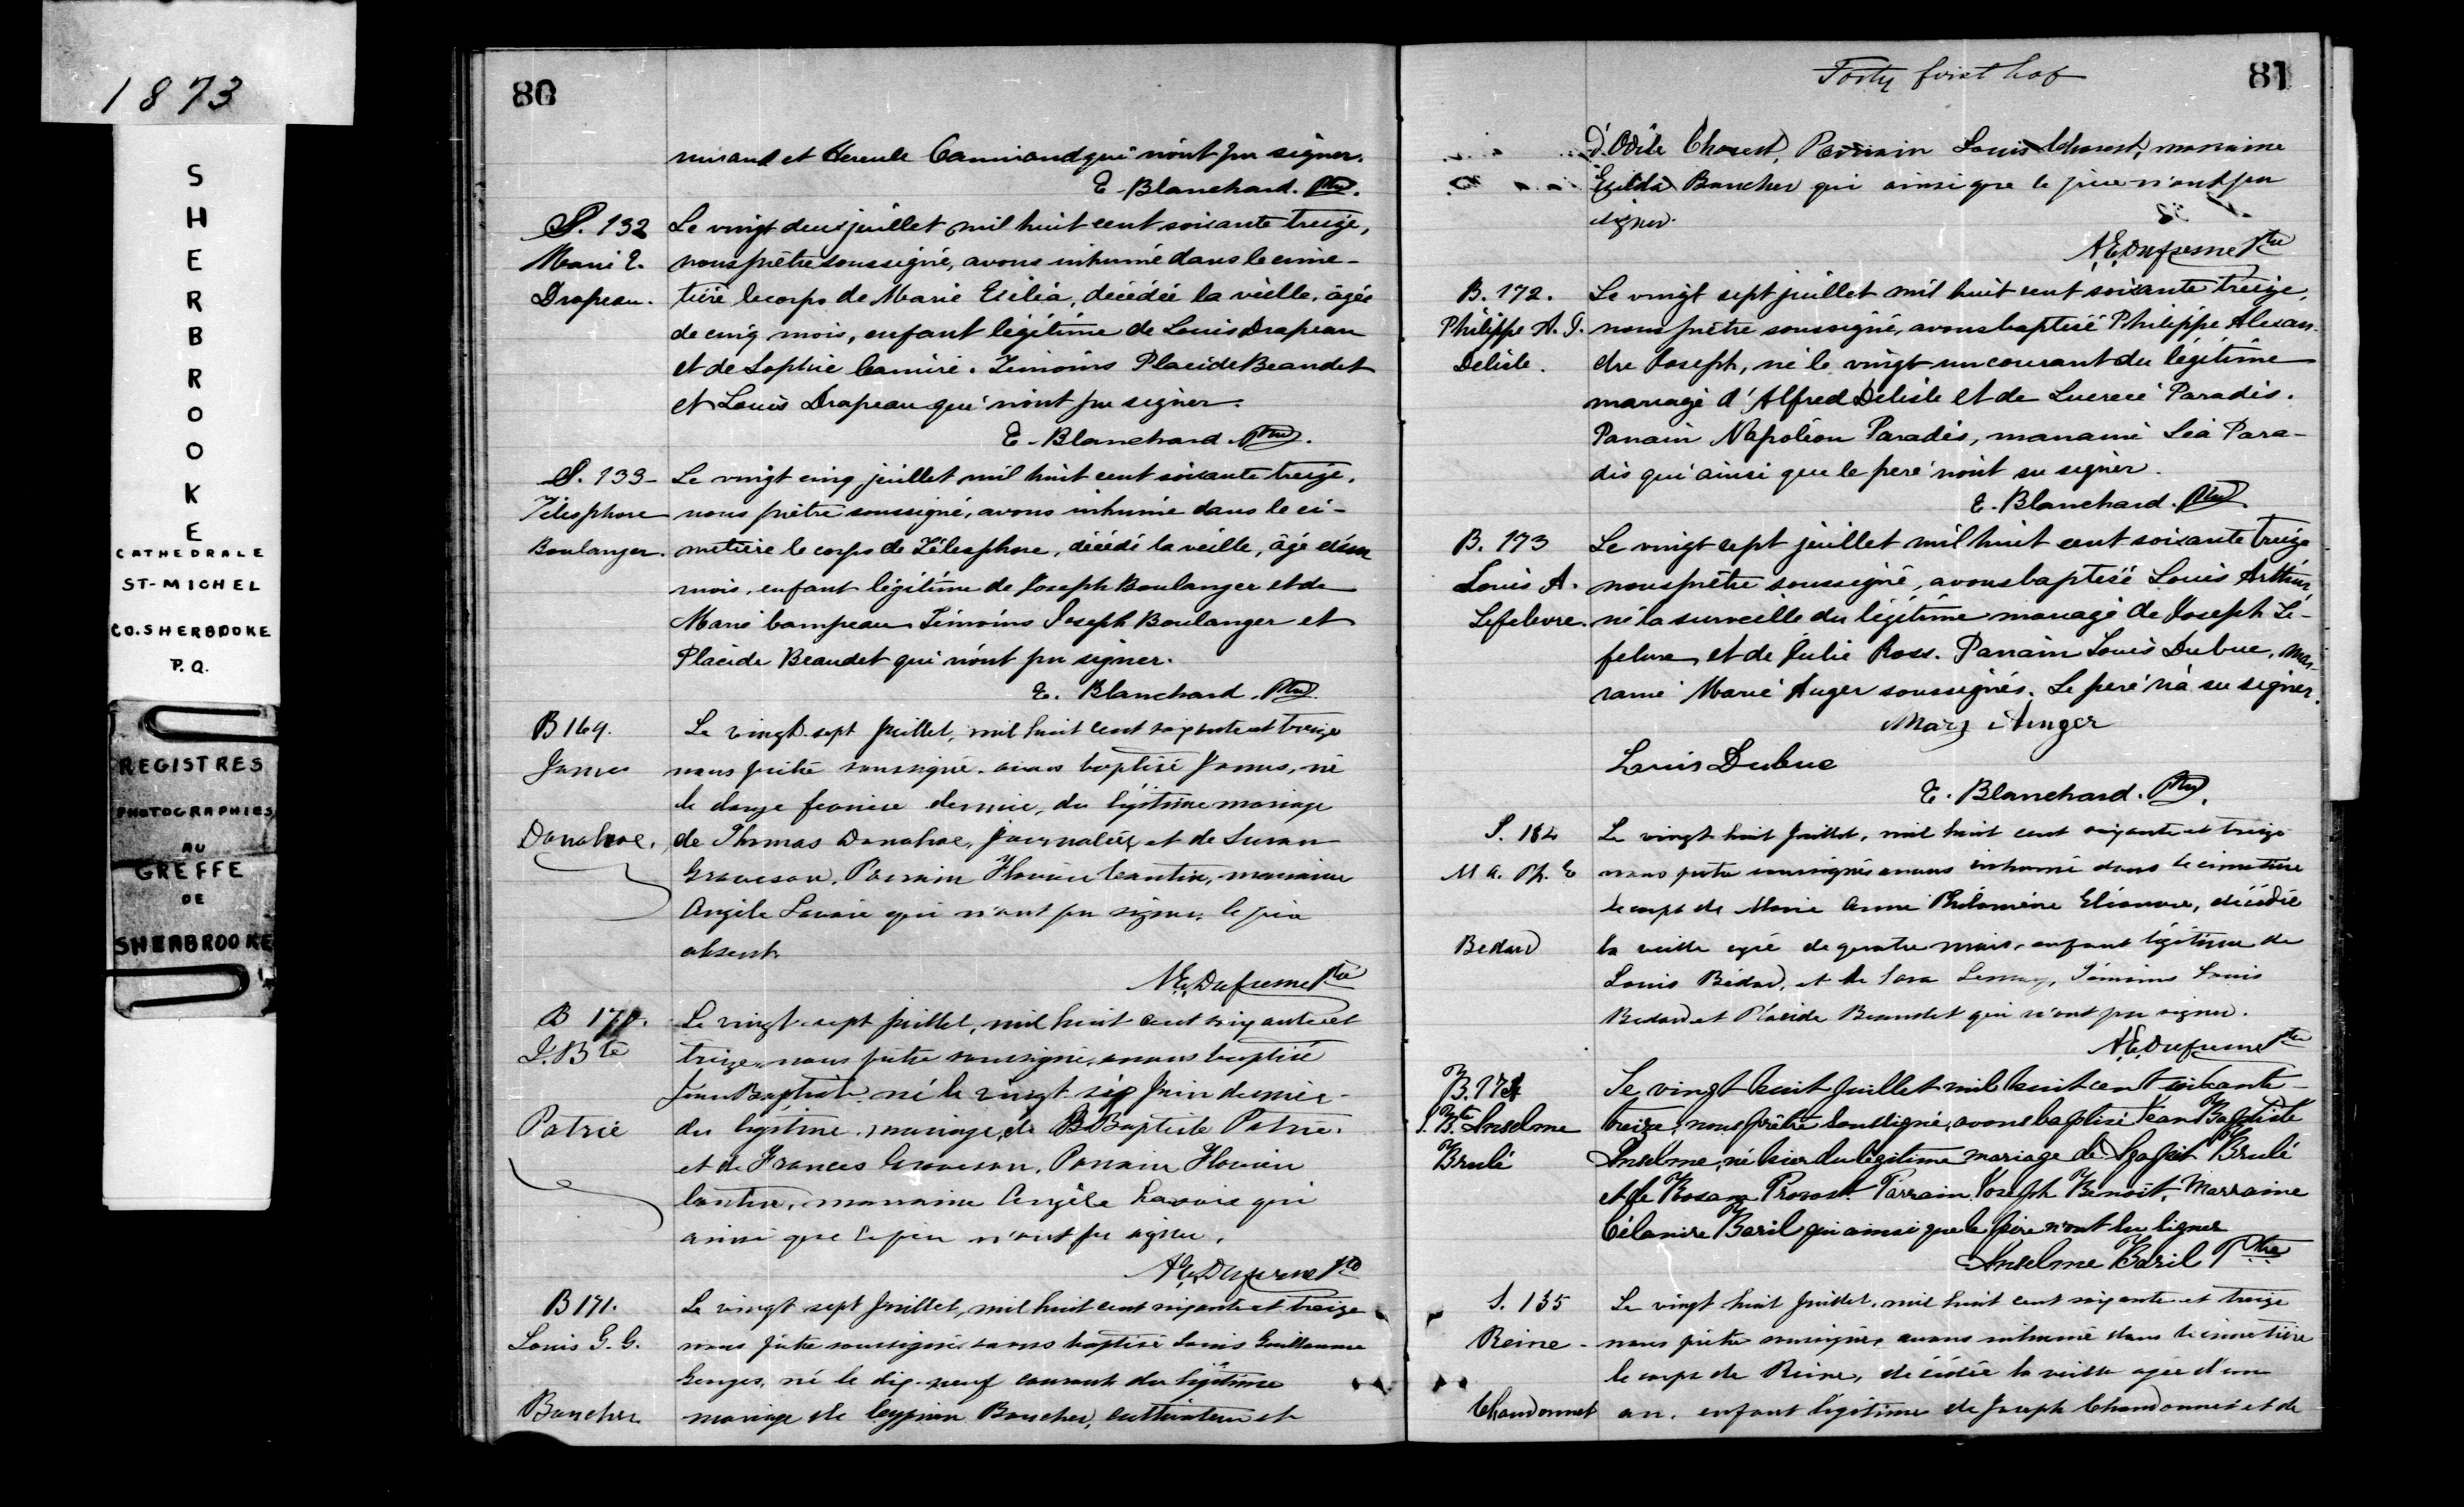 1873
SHERBROOKE
CATHEDRALE
ST-MICHEL
CO. SHERBROOKE
P.Q.
REGISTRES
PHOTOGRAPHIES
AU
GREFFE
DE
SHERBROOKE
80
mirand et Hercule Camirand qui n'ont pu signer.
E. Blanchard. Ptre.
S. 132
Marie E.
Drapeau.
Le vingt deux juillet mil huit cent soixante treize,
nous prêtre soussigné, avons inhumé dans le cime-
tière le corps de Marie Exilia, décédée la veille, âgée
de cinq mois, enfant légitime de Louis Drapeau
et de Sophie Camiré. Témoins Placide Beaudet
et Louis Drapeau qui n'ont pu signer.
E. Blanchard Ptre.
S. 133
Télesphore
Boulanger.
Le vingt cinq juillet mil huit cent soixante treize,
nous prêtre soussigné, avons inhumé dans le ci-
metière le corps de Télesphore, décédé la veille, âgé d'un
mois, enfant légitime de Joseph Boulanger et de
Marie Campeau Témoins Joseph Boulanger et
Placide Beaudet qui n'ont pu signer.
E. Blanchard. Ptre.
B 169.
James
Donahoe.
Le vingt-sept Juillet, mil huit cent soixante et treize
nous prêtre soussigné, avons baptisé James, né
le douze fevrier dernier, du légitime mariage
de Thomas Donahoe, journalier et de Susan
Graveson, Parrain Flavien Cantin, marraine
Angèle Lavoie qui n'ont pu signer, le père
absent.
A. E. Dufresne Ptre
B 170.
J. Bte
Patrie
Le vingt-sept juillet, mil huit cent soixante et
treize, nous prêtre soussigné, avons baptisé
Jean Baptiste né le vingt-six Juin dernier
du légitime mariage de Baptiste Patrie
et de Frances Graveson, Parrain Flavien
Cantin, marraine Angèle Lavoie qui
ainsi que le père n'ont pu signer.
A. E. Dufresne Ptre
B 171.
Louis G. G.
Boucher
Le vingt sept Juillet, mil huit cent soixante et treize
nous prêtre soussigné, avons baptisé Louis Guillaume
Georges, né le dix-neuf courant du légitime
mariage de Cyprien Boucher, cultivateur et
Forty first leaf
81
d'Odile Chorest, Parrain Louis Chorest, marraine
Exilda Boucher qui ainsi que le père n'ont pu
signer.
A. E. Dufresne Ptre
B. 172.
Philippe A. J.
Delisle.
Le vingt sept juillet mil huit cent soixante treize,
nous prêtre soussigné, avons baptisé Philippe Alexan-
dre Joseph, né le vingt un courant du légitime
mariage d'Alfred Delisle et de Lucrece Paradis.
Parrain Napoléon Paradis, marraine Léa Para-
dis qui ainsi que le père n'ont su signer.
E. Blanchard. Ptre
B. 173
Louis A.
Lefebvre.
Le vingt sept juillet mil huit cent soixante treize
nous prêtre soussigné, avons baptisé Louis Arthur,
né la surveille du légitime mariage de Joseph Le-
febvre, et de Julie Ross. Parrain Louis Dubuc, mar-
raine Marie Auger soussignés. Le père n'a su signer.
Mary Auger
Louis Dubuc
E. Blanchard. Ptre.
S. 134
M A. Ph. E
Bedard
Le vingt-huit Juillet, mil huit cent soixante et treize
nous prêtre soussignés avons inhumé dans le cimetière
le corps de Marie Anne Philomène Eléonore, décédée
la veille agée de quatre mois, enfant légitime de
Louis Bédard, et de Sara Lemay, Témoins Louis
Bedard et Placide Beaudet qui n'ont pu signer.
A. E. Dufresne Ptre
B. 174
J. Bte Anselme
Brulé
Le vingt huit Juillet mil huit cent soixante
treize, nous prêtre soussigné, avons baptisé Jean Baptiste
Anselme, né hier du légitime mariage de Agapit Brulé
et de Rosam Provost. Parrain Joseph Benoit, Marraine
Célanire Baril qui ainsi que le père n'ont su signer
Anselme Baril Ptre
S. 135
Reine
Chandonnet
Le vingt huit Juillet, mil huit cent soixante et treize
nous prêtre soussignés avons inhumé dans le cimetière
le corps de Reine, décédée la veille agée d'un
an. enfant légitime de Joseph Chandonnet et de